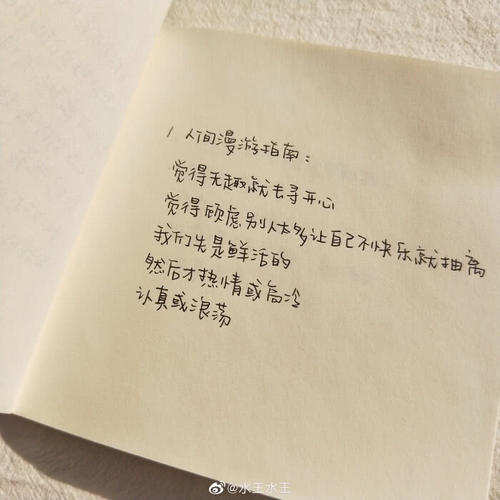 1 人间漫游指南：
觉得无趣就去寻开心
觉得顾虑别人太多让自己不快乐就抽离
我们先是鲜活的
然后才热情或高冷
认真或浪荡
@水王水王